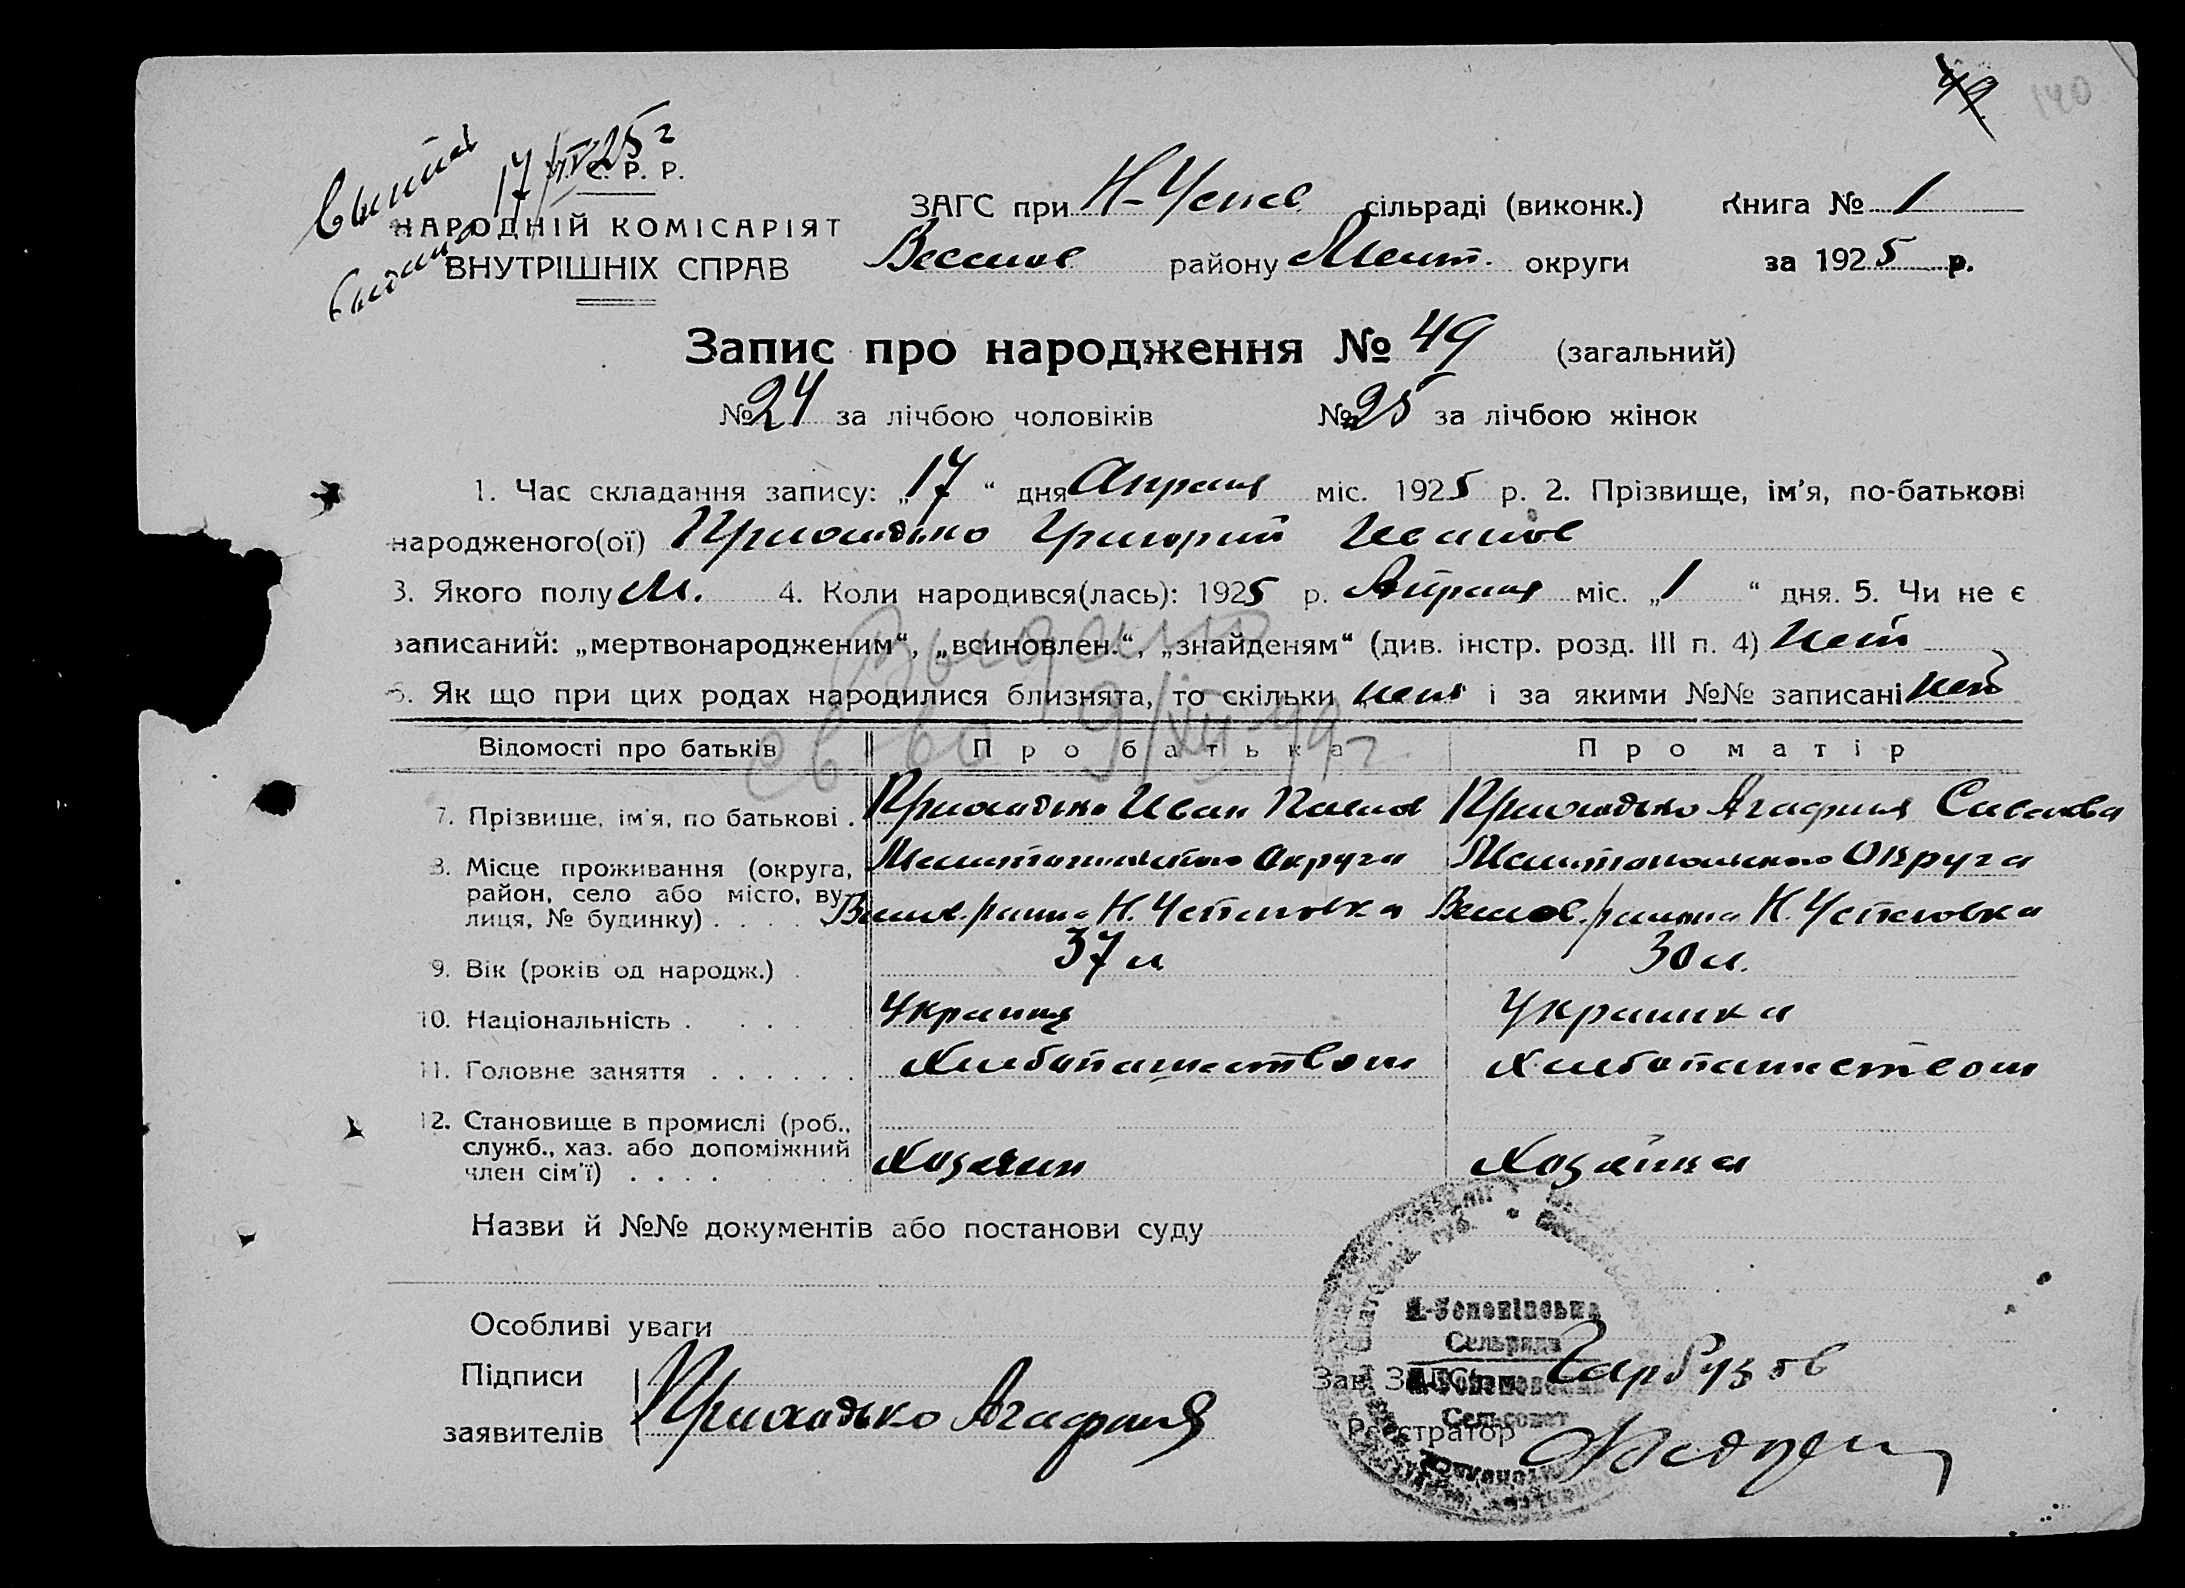 49 140
17/IV 25 г
С. Р. Р.
НАРОДНІЙ КОМІСАРІЯТ
ВНУТРІШНІХ СПРАВ
ЗАГС при Н-Успев. сільраді (виконк.) Книга № 1
Веселов району Мелит. округи за 1925 р.
Запис про народження № 49 (загальний)
№ 24 за лічбою чоловіків № 25 за лічбою жінок
1. Час складання запису: „17“ дня Апреля міс. 1925 р. 2. Прізвище, ім'я, по-батькові
народженого(ої) Приходько Григорий Иванов
3. Якого полу М. 4. Коли народився(лась): 1925 р. Апреля міс. „1“ дня. 5. Чи не є
записаний: „мертвонародженим“, „всиновлен.“, „знайденям“ (див. інстр. розд. III п. 4) Нет
6. Як що при цих родах народилися близнята, то скільки нет і за якими №№ записані нет
Выдано
св во 9/VII-49 г
Відомості про батьків Про батька Про матір
7. Прізвище, ім'я, по батькові . Приходько Иван Павлов Приходько Агафия Савелова
8. Місце проживання (округа, Мелитопольского Округа Мелитопольского Округа
район, село або місто, ву-
лиця, № будинку) . . . . . Весел. района Н. Успеновка Веселов. района Н. Успеновка
9. Вік (років од народж.) . 37 л 30 л.
10. Національність . . . . Украинец Украинка
11. Головне заняття . . . . . . Хлебопашеством Хлебопашеством
12. Становище в промислі (роб.,
служб., хаз. або допоміжний
член сім'ї) . . . . Хозяин Хозяйка
Назви й №№ документів або постанови суду
Особливі уваги
Н-Успенівська
Сельрада
Підписи
заявителів Приходько Агафия
Зав. ЗАГС'ом Гарбузов
Сельсовет
Реєстратор